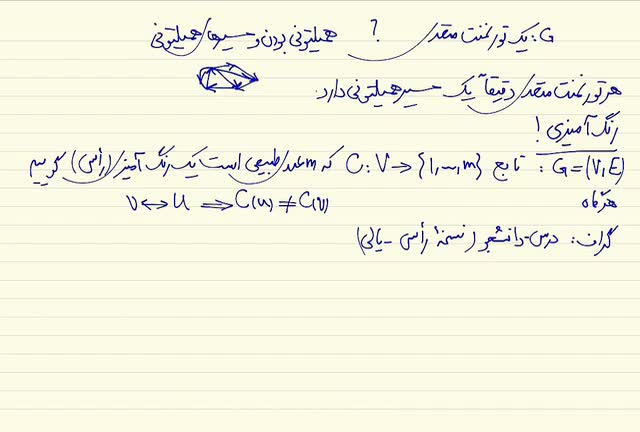 G: یک تورنمنت متعدی ? همیلتونی بودن و مسیرهای همیلتونی
هر تورنمنت متعدی دقیقاً یک مسیر همیلتونی دارد.
رنگ آمیزی!
G=(V,E): تابع C: V → {1,...,m} که m عدد طبیعی است یک رنگ آمیزی (رأسی) گوییم
هرگاه v ↔ u ⟹ C(u) ≠ C(v)
گراف: درس-دانشجو (نسخهٔ رأسی - یالی)